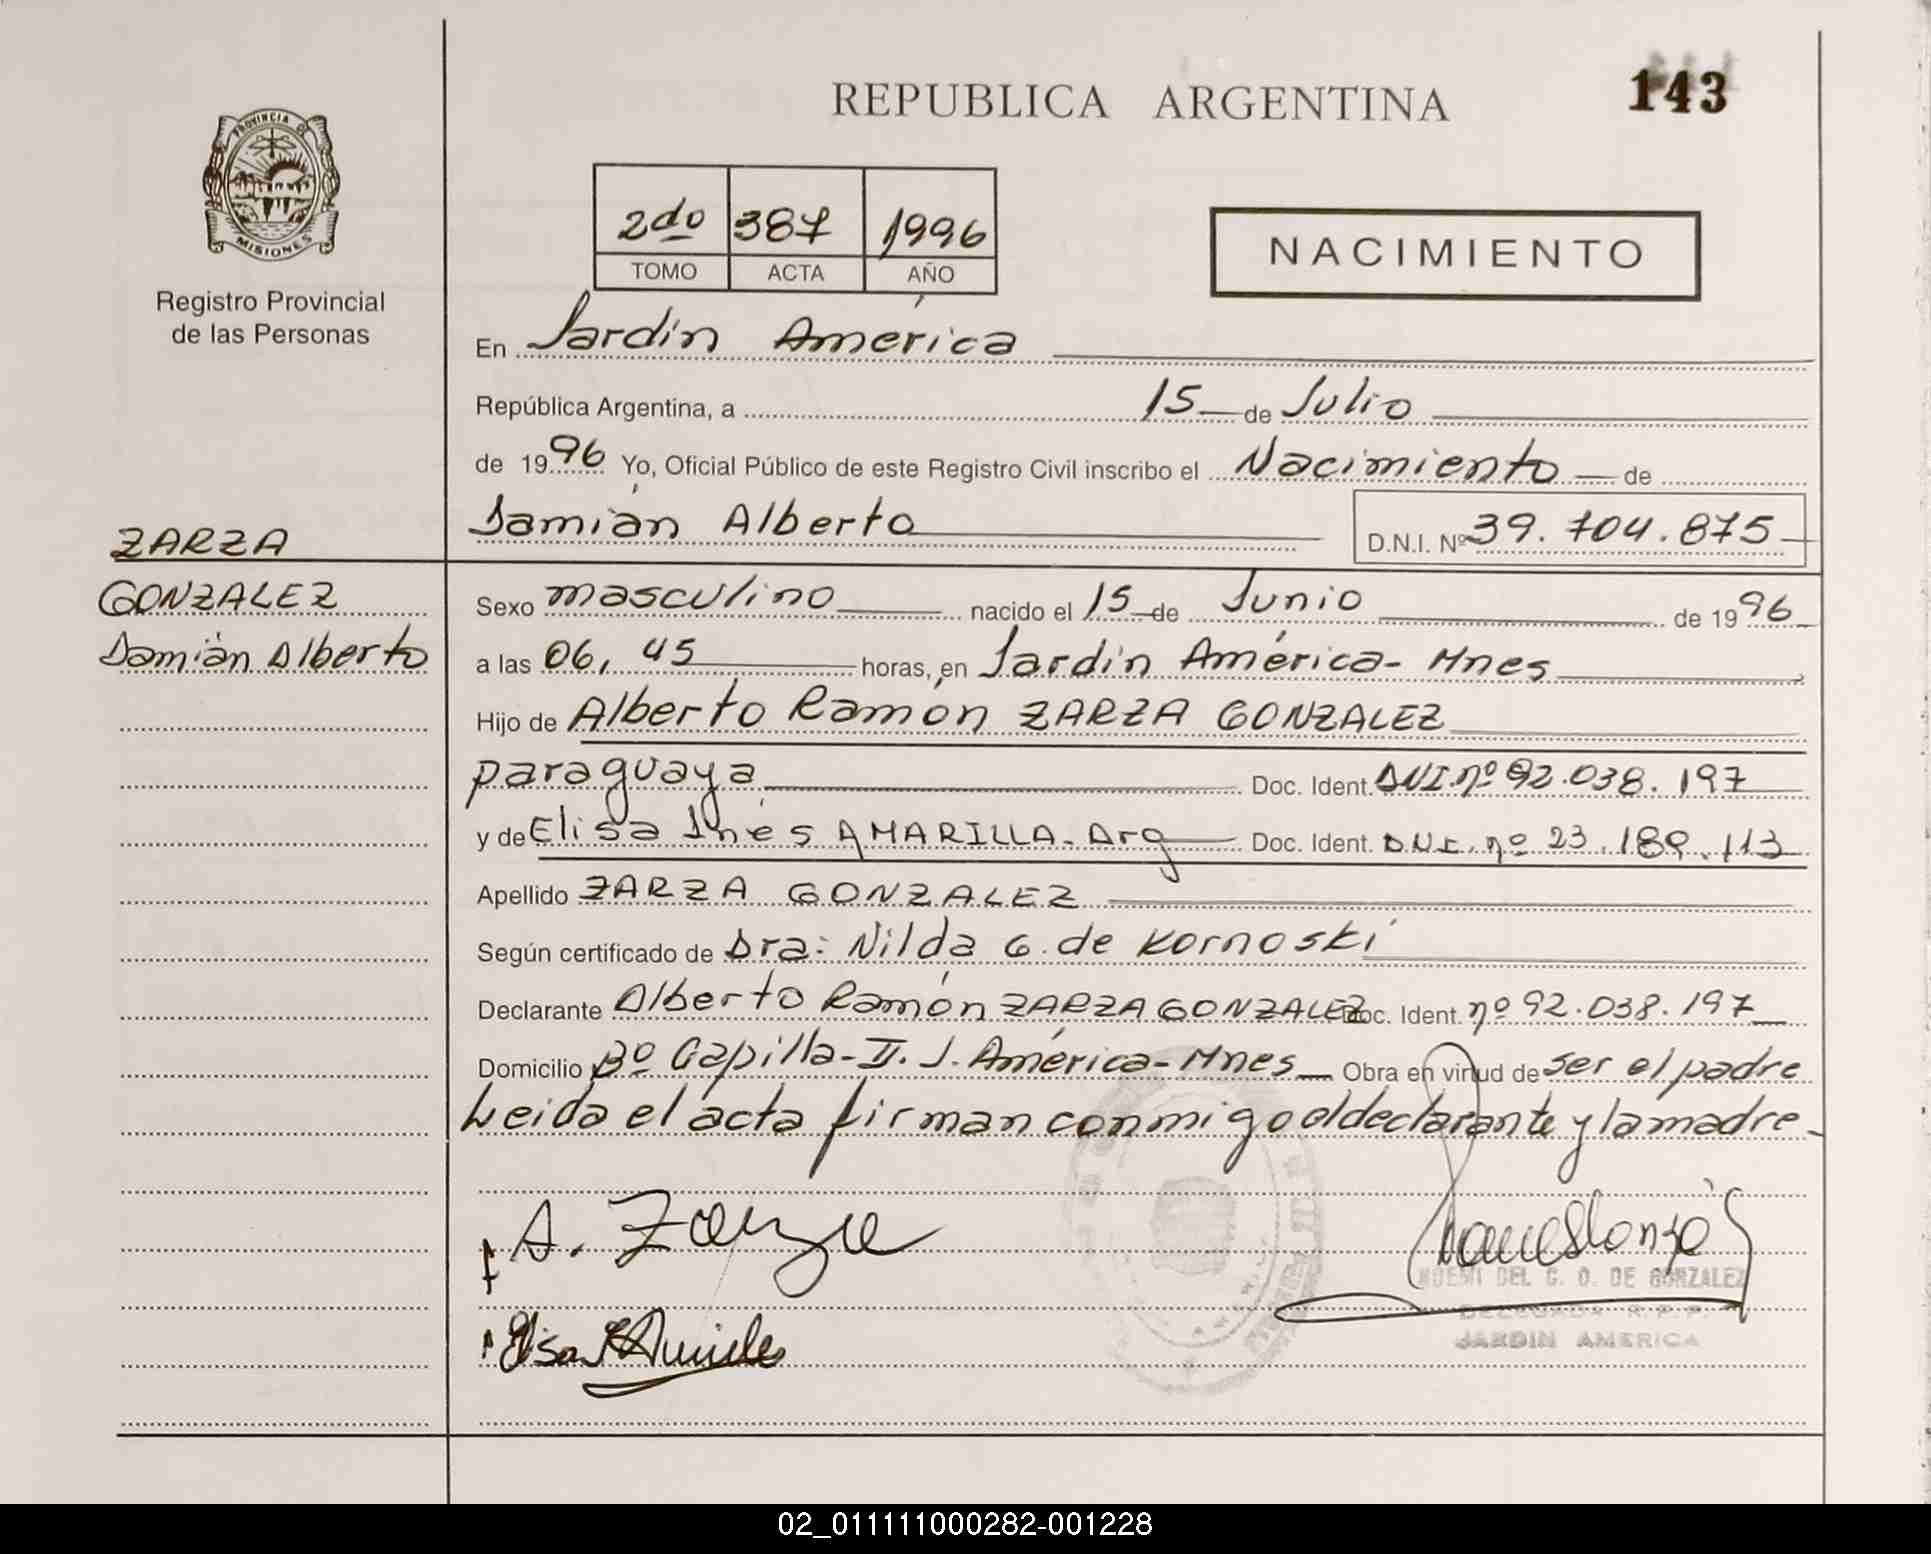 REPUBLICA ARGENTINA
143
PROVINCIA DE
MISIONES
Registro Provincial
de las Personas
2do 387 1996
TOMO ACTA AÑO
NACIMIENTO
En Jardín América
República Argentina, a 15 de Julio
de 1996 Yo, Oficial Público de este Registro Civil inscribo el Nacimiento de
Damián Alberto D.N.I. Nº 39.704.875
ZARZA
GONZALEZ
Damián Alberto
Sexo masculino nacido el 15 de Junio de 1996
a las 06,45 horas, en Jardín América - Mnes
Hijo de Alberto Ramón ZARZA GONZALEZ
paraguaya Doc. Ident. DNI nº 92.038.197
y de Elisa Inés AMARILLA - Arg Doc. Ident. D.N.I. nº 23.189.113
Apellido ZARZA GONZALEZ
Según certificado de Dra: Nilda G. de Kornoski
Declarante Alberto Ramón ZARZA GONZALEZ Doc. Ident. nº 92.038.197
Domicilio Bº Capilla - II. J. América - Mnes Obra en virtud de ser el padre
Leida el acta firman conmigo el declarante y la madre
A. Zarza
NOEMI DEL C. O. DE GONZALEZ
DELEGADA R.P.P.
JARDIN AMERICA
02_011111000282-001228